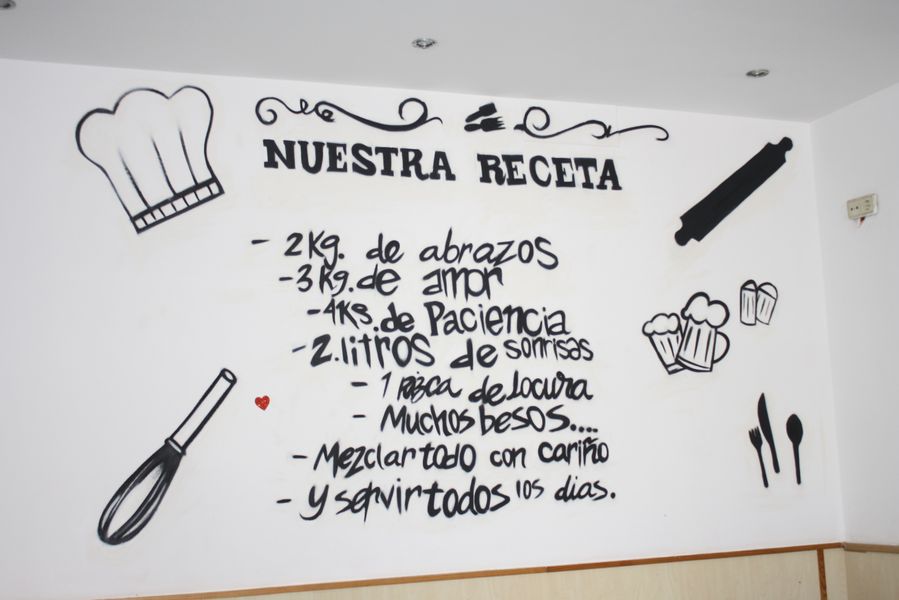 NUESTRA RECETA
- 2Kg. de abrazos
- 3Kg. de amor
- 4Kg. de Paciencia
- 2. litros de sonrisas
- 1 pizca de Locura
- Muchos besos....
- Mezclar todo con cariño
- Y servir todos los dias.